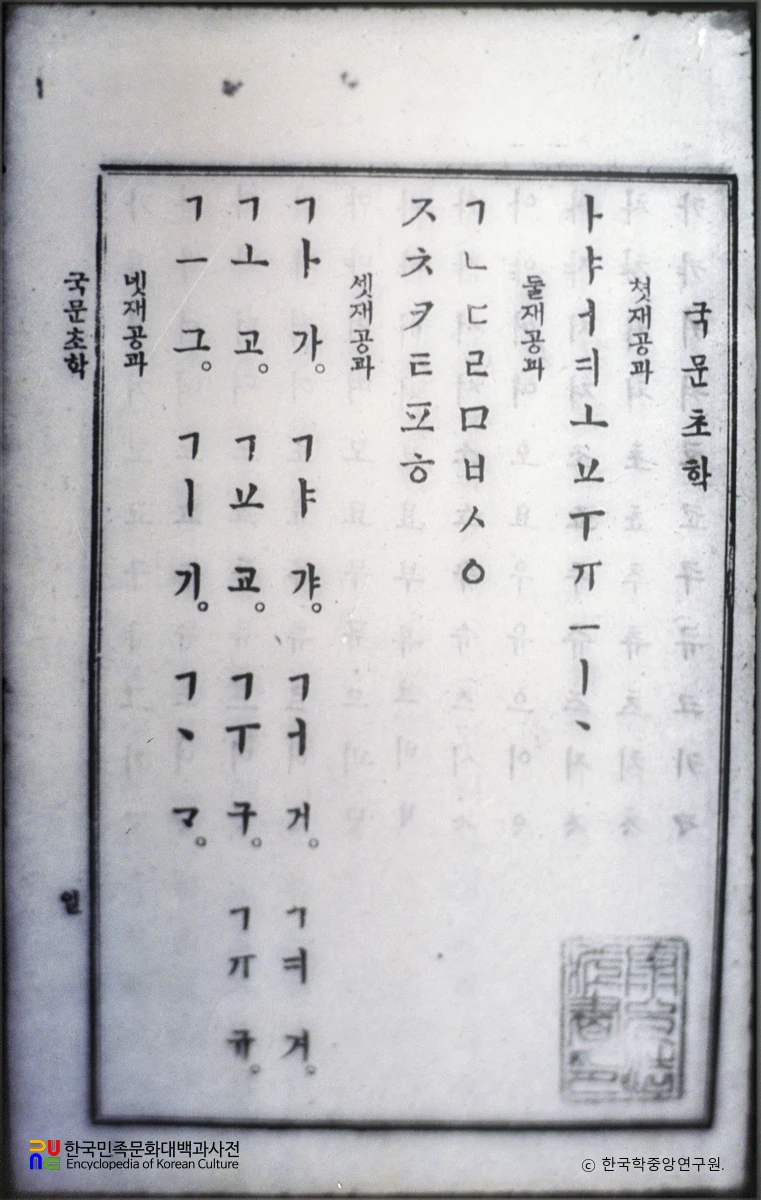 국문초학
첫재공과
ㅏㅑㅓㅕㅗㅛㅜㅠㅡㅣㆍ
둘재공과
ㄱㄴㄷㄹㅁㅂㅅㅇ
ㅈㅊㅋㅌㅍㅎ
셋재공과
ㄱㅏ 가。 ㄱㅑ 갸。 ㄱㅓ 거。 ㄱㅕ 겨。
ㄱㅗ 고。 ㄱㅛ 교。 ㄱㅜ 구。 ㄱㅠ 규。
ㄱㅡ 그。 ㄱㅣ 기。 ㄱㆍ ᄀᆞ。
넷재공과
국문초학
일
한국민족문화대백과사전
Encyclopedia of Korean Culture
© 한국학중앙연구원.